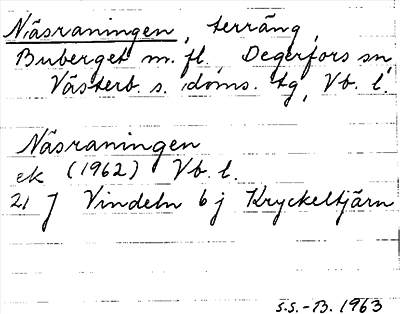 Näsraningen, terräng,
Buberget m. fl. Degerfors sn,
Västerb. s. doms. tg, Vb. l.
Näsraningen
ek (1962) Vb. l.
21 J Vindeln 6 j Kryckeltjärn
S.S.-B. 1963